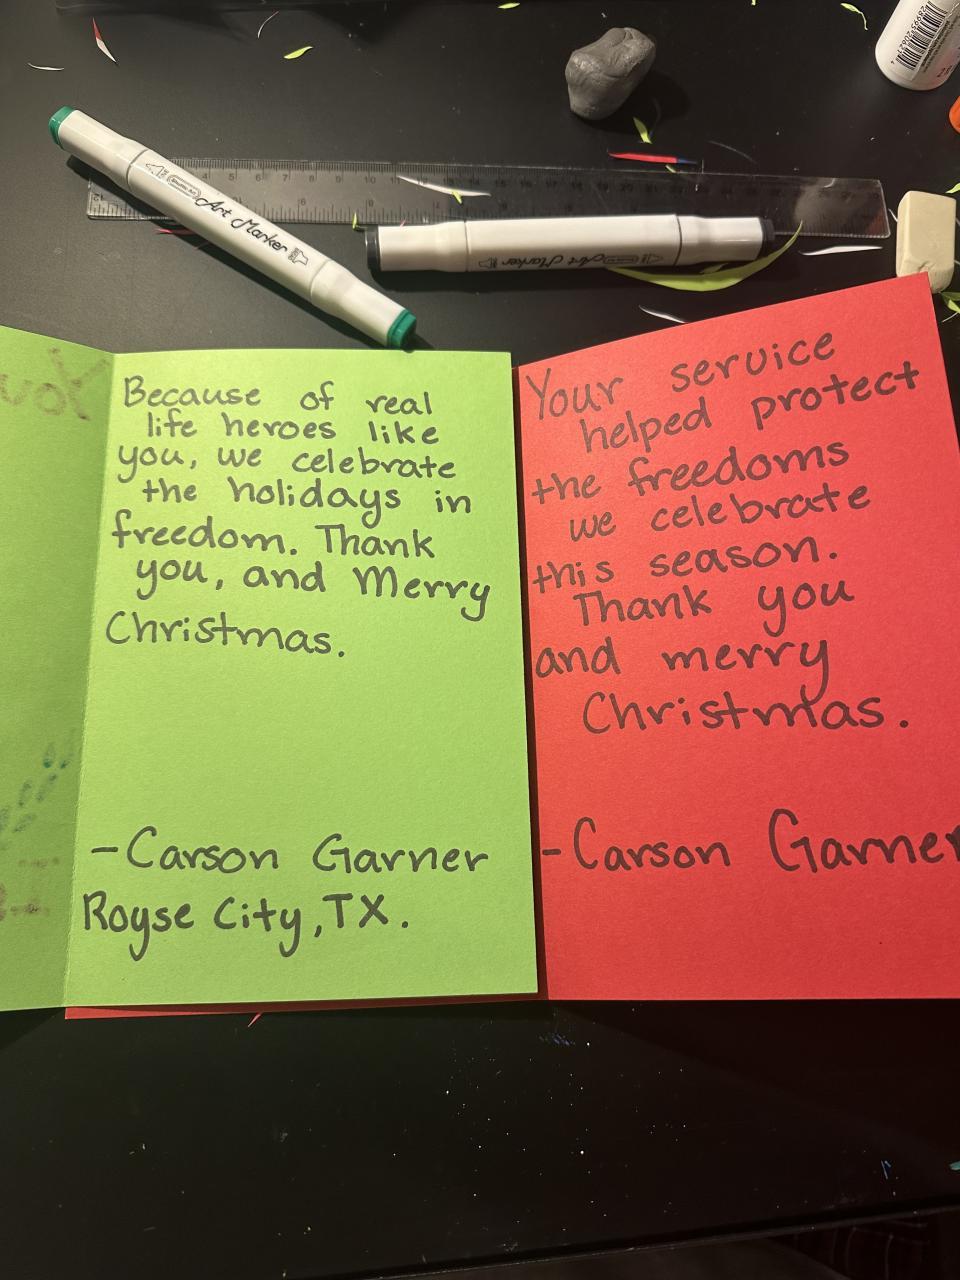 Art Marker
Art Marker
Because of real
life heroes like
you, we celebrate
the holidays in
freedom. Thank
you, and Merry
Christmas.
-Carson Garner
Royse City, TX.
Your service
helped protect
the freedoms
we celebrate
this season.
Thank you
and merry
Christmas.
-Carson Garner